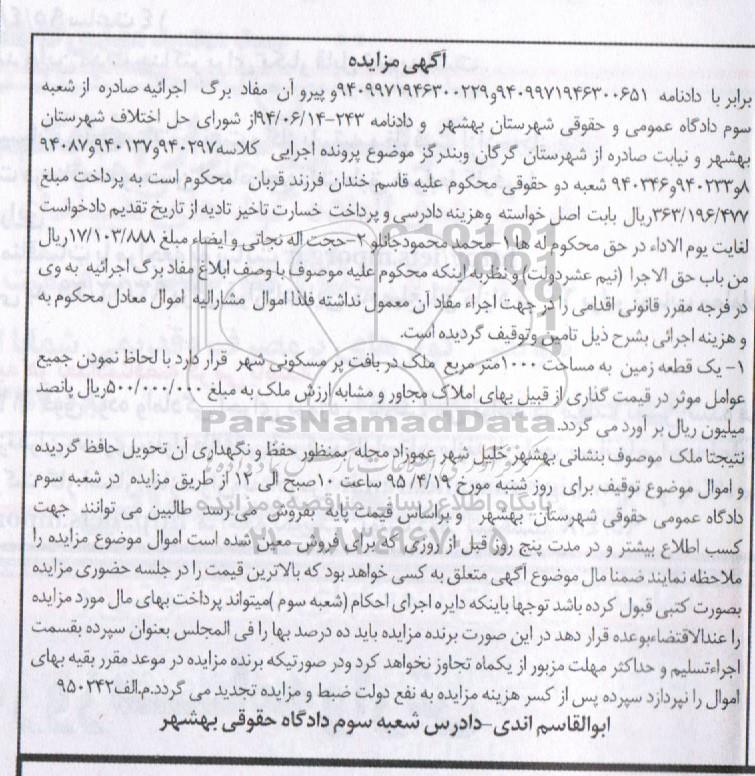 آگهی مزایده
برابر با دادنامه ۹۴۰۹۹۷۱۹۴۶۳۰۰۶۵۱و۹۴۰۹۹۷۱۹۴۶۳۰۰۲۳۹و پیرو آن مفاد برگ اجرائیه صادره از شعبه
سوم دادگاه عمومی و حقوقی شهرستان بهشهر و دادنامه ۲۴۳-۹۴/۰۶/۱۴از شورای حل اختلاف شهرستان
بهشهر و نیابت صادره از شهرستان گرگان وبندرگز موضوع پرونده اجرایی کلاسه۹۴۰۲۹۷و۹۴۰۱۳۷و۹۴۰۸۷
۸و۹۴۰۲۳۳و۹۴۰۳۴۶ شعبه دو حقوقی محکوم علیه قاسم خندان فرزند قربان محکوم است به پرداخت مبلغ
۳۶۳/۱۹۶/۴۷۷ریال بابت اصل خواسته وهزینه دادرسی و پرداخت خسارت تاخیر تادیه از تاریخ تقدیم دادخواست
لغایت یوم الاداء در حق محکوم له ها ۱- محمد محمودجانلو ۲-حجت اله نجاتی و ایضاء مبلغ ۱۷/۱۰۳/۸۸۸ریال
من باب حق الاجرا (نیم عشردولت) و نظر به اینکه محکوم علیه موصوف با وصف ابلاغ مفاد برگ اجرائیه به وی
در فرجه مقرر قانونی اقدامی را در جهت اجراء مفاد آن معمول نداشته فلذا اموال مشارالیه اموال معادل محکوم به
و هزینه اجرائی بشرح ذیل تامین وتوقیف گردیده است.
۱- یک قطعه زمین به مساحت ۱۰۰۰متر مربع ملک در بافت پر مسکونی شهر قرار دارد با لحاظ نمودن جمیع
عوامل موثر در قیمت گذاری از قبیل بهای املاک مجاور و مشابه ارزش ملک به مبلغ ۵۰۰/۰۰۰/۰۰۰ریال پانصد
میلیون ریال بر آورد می گردد.
نتیجتا ملک موصوف بنشانی بهشهر خلیل شهر عموزاد محله بمنظور حفظ و نگهداری آن تحویل حافظ گردیده
و اموال موضوع توقیف برای روز شنبه مورخ ۹۵/۴/۱۹ ساعت ۱۰صبح الی ۱۲ از طریق مزایده در شعبه سوم
دادگاه عمومی حقوقی شهرستان بهشهر و براساس قیمت پایه بفروش می رسد طالبین می توانند جهت
کسب اطلاع بیشتر و در مدت پنج روز قبل از روزی که برای فروش معین شده است اموال موضوع مزایده را
ملاحظه نمایند ضمنا مال موضوع آگهی متعلق به کسی خواهد بود که بالاترین قیمت را در جلسه حضوری مزایده
بصورت کتبی قبول کرده باشد توجها باینکه دایره اجرای احکام (شعبه سوم )میتواند پرداخت بهای مال مورد مزایده
را عندالاقتضاءبوعده قرار دهد در این صورت برنده مزایده باید ده درصد بها را فی المجلس بعنوان سپرده بقسمت
اجراءتسلیم و حداکثر مهلت مزبور از یکماه تجاوز نخواهد کرد ودر صورتیکه برنده مزایده در موعد مقرر بقیه بهای
اموال را نپردازد سپرده پس از کسر هزینه مزایده به نفع دولت ضبط و مزایده تجدید می گردد.م.الف۹۵۰۲۴۲
ابوالقاسم اندی-دادرس شعبه سوم دادگاه حقوقی بهشهر
ParsNamadData
پایگاه اطلاع رسانی مناقصه و مزایده